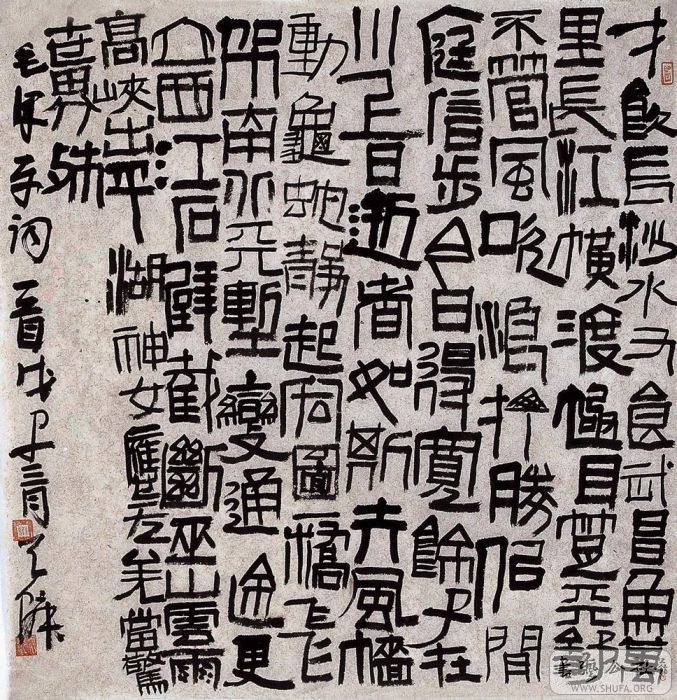 才飲長沙水又食武昌魚萬
里長江橫渡極目楚天舒
不管風吹浪打勝似閒
庭信步今日得寬餘子在
川上曰逝者如斯夫風檣
動龜蛇靜起宏圖一橋飛
架南北天塹變通途更
立西江石壁截斷巫山雲雨
高峽出平湖神女應无羌當驚
世界殊
毛澤東詞一首戊子三月
WWW.SHUFA.ORG